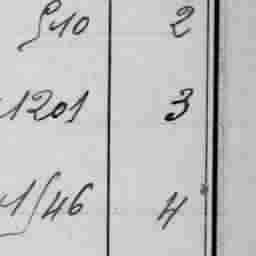 910 2
1201 3
1546 4